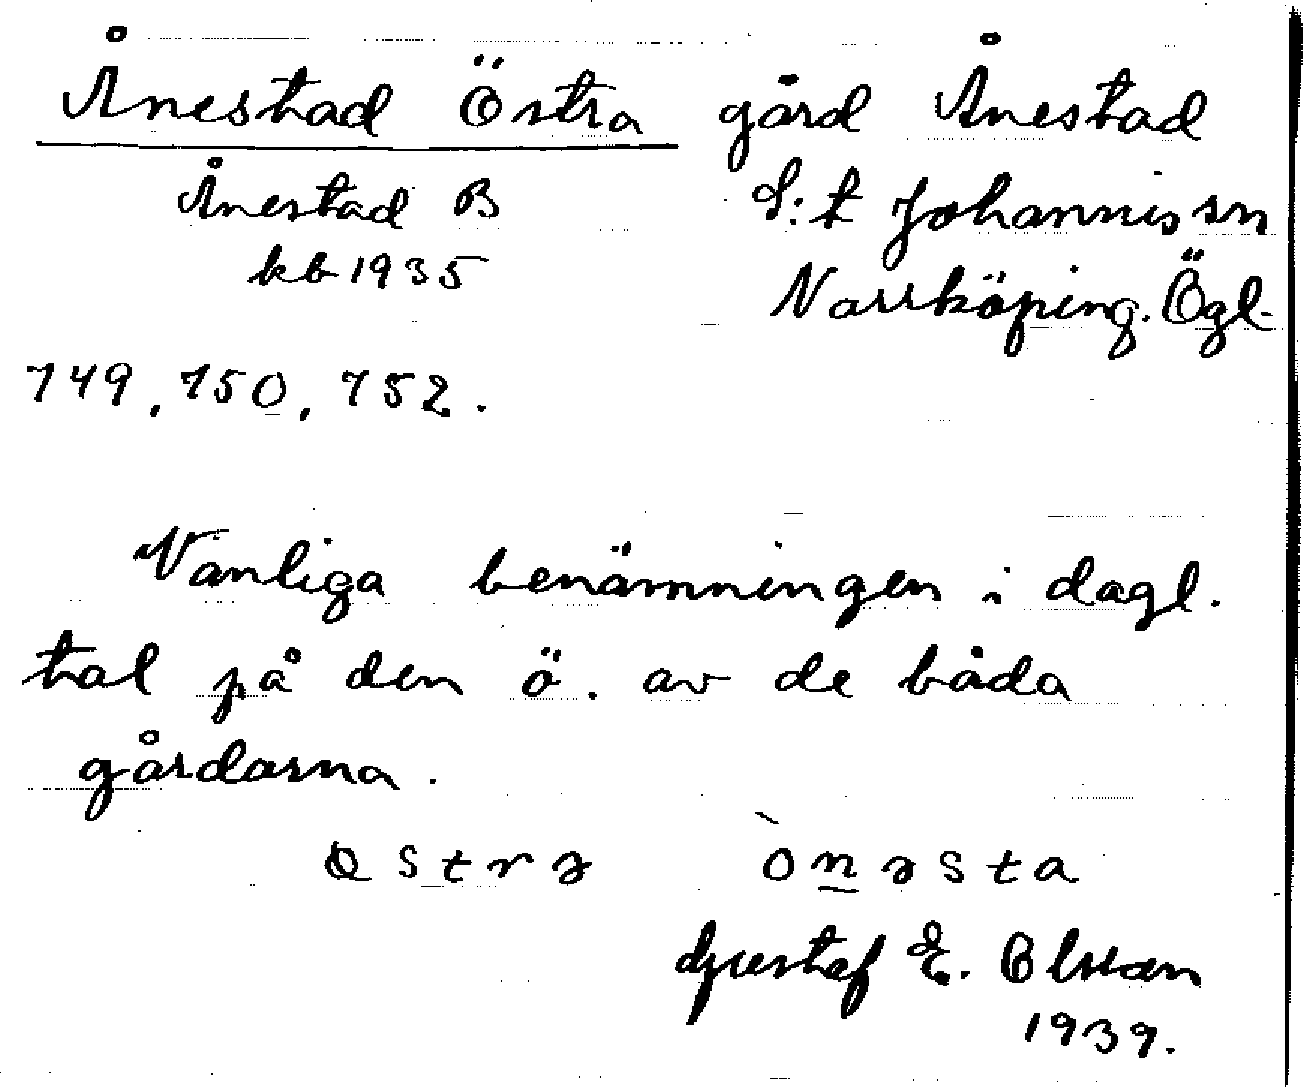 Ånestad Östra gård Ånestad
Ånestad B S:t Johannis sn
kb 1935 Norrköping. Ögl.
749, 750, 752.
Vanliga benämningen i dagl.
tal på den ö. av de båda
gårdarna.
Gustaf E. Olsson
1939.